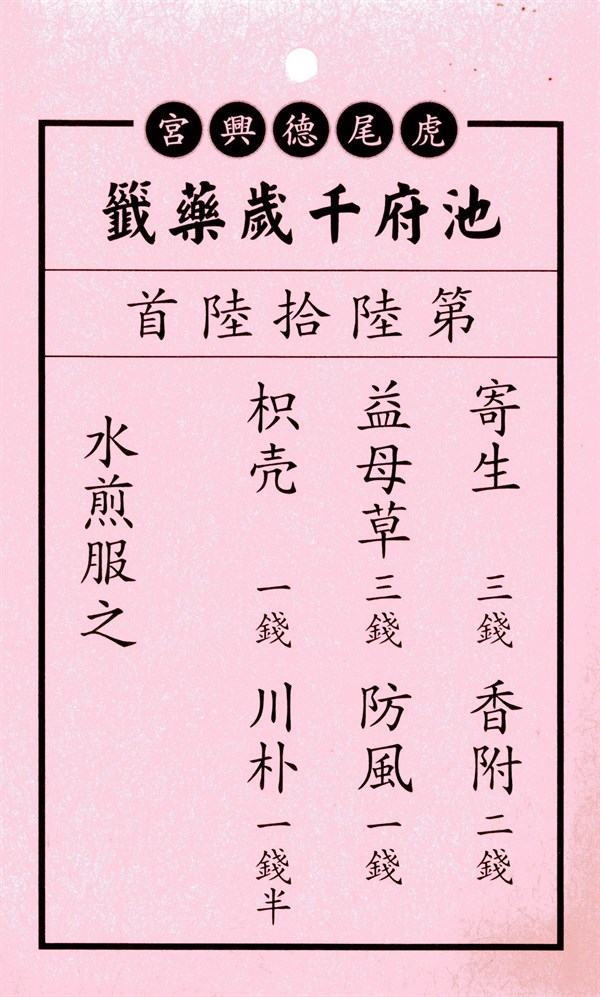 虎尾德興宮
池府千歲藥籤
第陸拾陸首
寄生 三錢 香附 二錢
益母草 三錢 防風 一錢
枳壳 一錢 川朴 一錢半
水煎服之